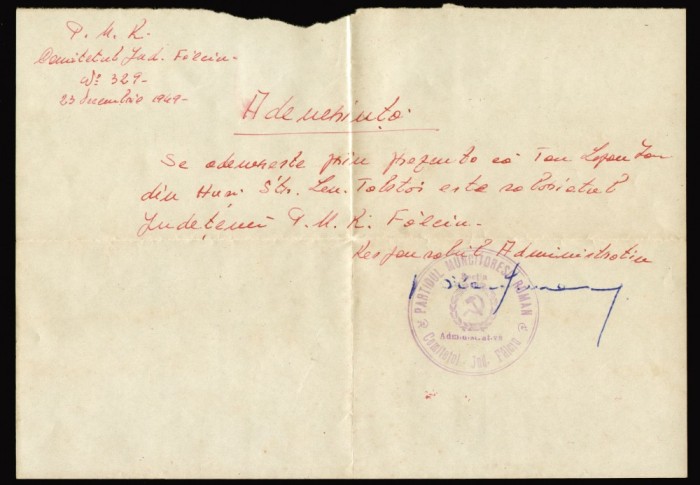 P. M. R.
Comitetul Jud. Fălciu -
No 329 -
23 decembrie 1949 -
Adeverință
Se adeverește prin prezenta că Tov.
din Huși Str. Lev. Tolstoi este salariatul
Județenei P. M. R. Fălciu -
Responsabil Administrativ
PARTIDUL MUNCITORESC ROMAN
Administrativă
Comitetul Jud. Fălciu